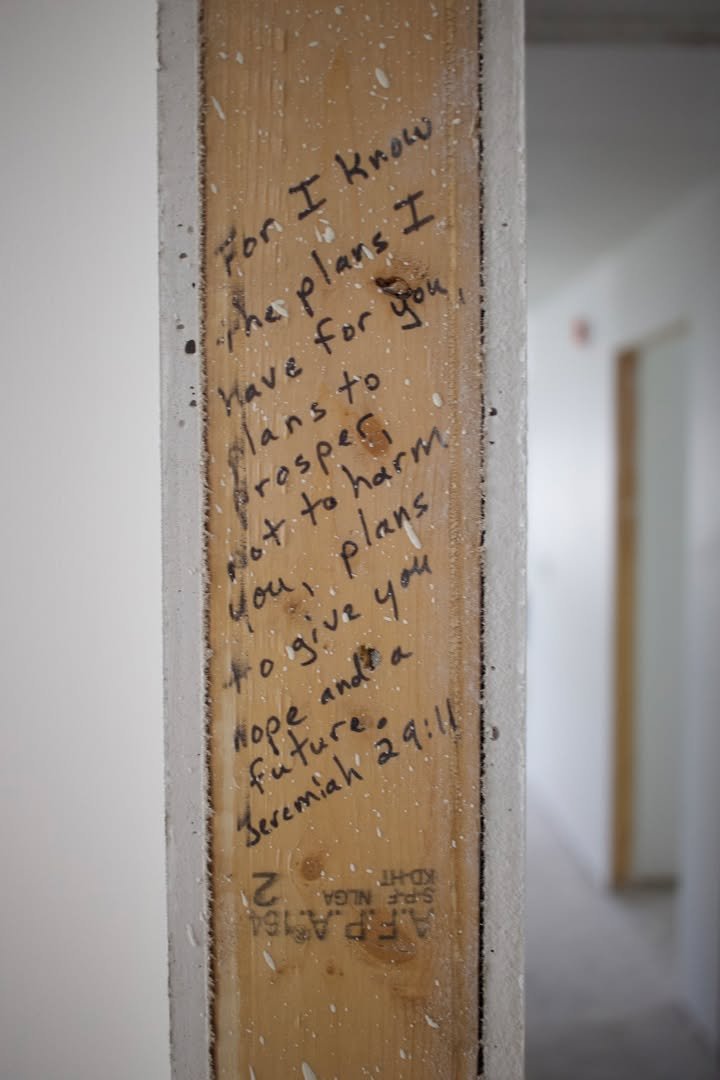 For I know
the plans I
have for you,
plans to
prosper,
not to harm
you, plans
to give you
hope and a
future.
Jeremiah 29:11
A.F.P.A.®164 2
S-P-F NLGA
KD-HT